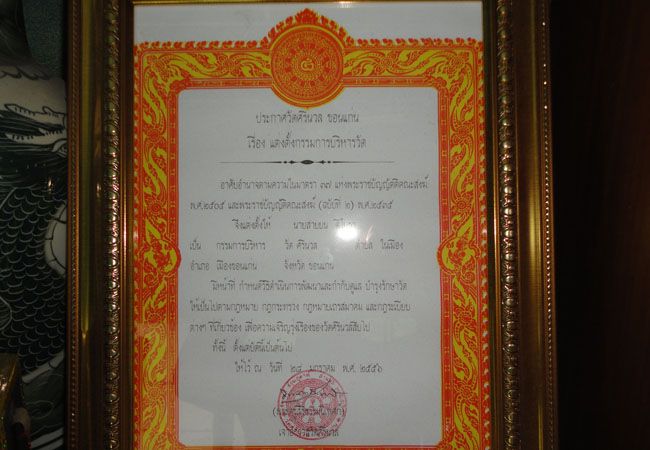 ประกาศวัดศิรินวล ขอนแก่น
เรื่อง แต่งตั้งกรรมการบริหารวัด
อาศัยอำนาจตามความในมาตรา ๓๗ แห่งพระราชบัญญัติคณะสงฆ์
พ.ศ.๒๕๐๕ และพระราชบัญญัติคณะสงฆ์ (ฉบับที่ ๒) พ.ศ.๒๕๓๕
จึงแต่งตั้งให้ นายสายยน
เป็น กรรมการบริหาร วัด ศิรินวล ตำบล ในเมือง
อำเภอ เมืองขอนแก่น จังหวัด ขอนแก่น
มีหน้าที่ กำหนดวิธีดำเนินการพัฒนาและกำกับดูแล บำรุงรักษาวัด
ให้เป็นไปตามกฎหมาย กฎกระทรวง กฎหมายเถรสมาคม และกฎระเบียบ
ต่างๆ ที่เกี่ยวข้อง เพื่อความเจริญรุ่งเรืองของวัดศิรินวลสืบไป
ทั้งนี้ ตั้งแต่บัดนี้เป็นต้นไป
ให้ไว้ ณ วันที่ ๒๘ มกราคม พ.ศ. ๒๕๕๖
เจ้าอาวาสวัดศิรินวล